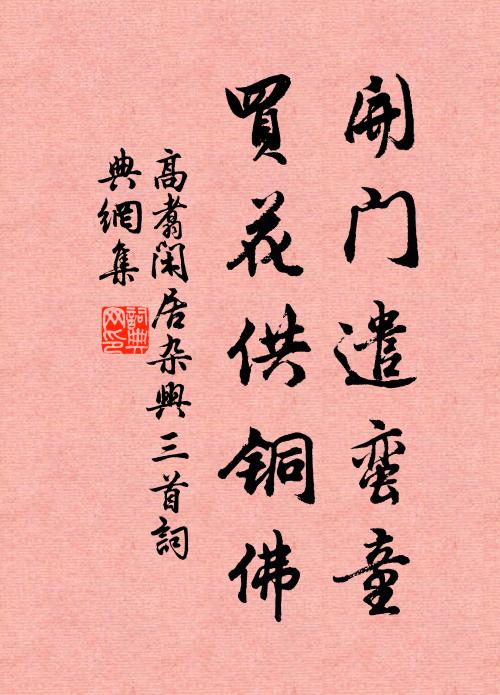 開门遣蛮童
買花供铜佛
高翥閑居杂興三首詞
典網集
詞典网印